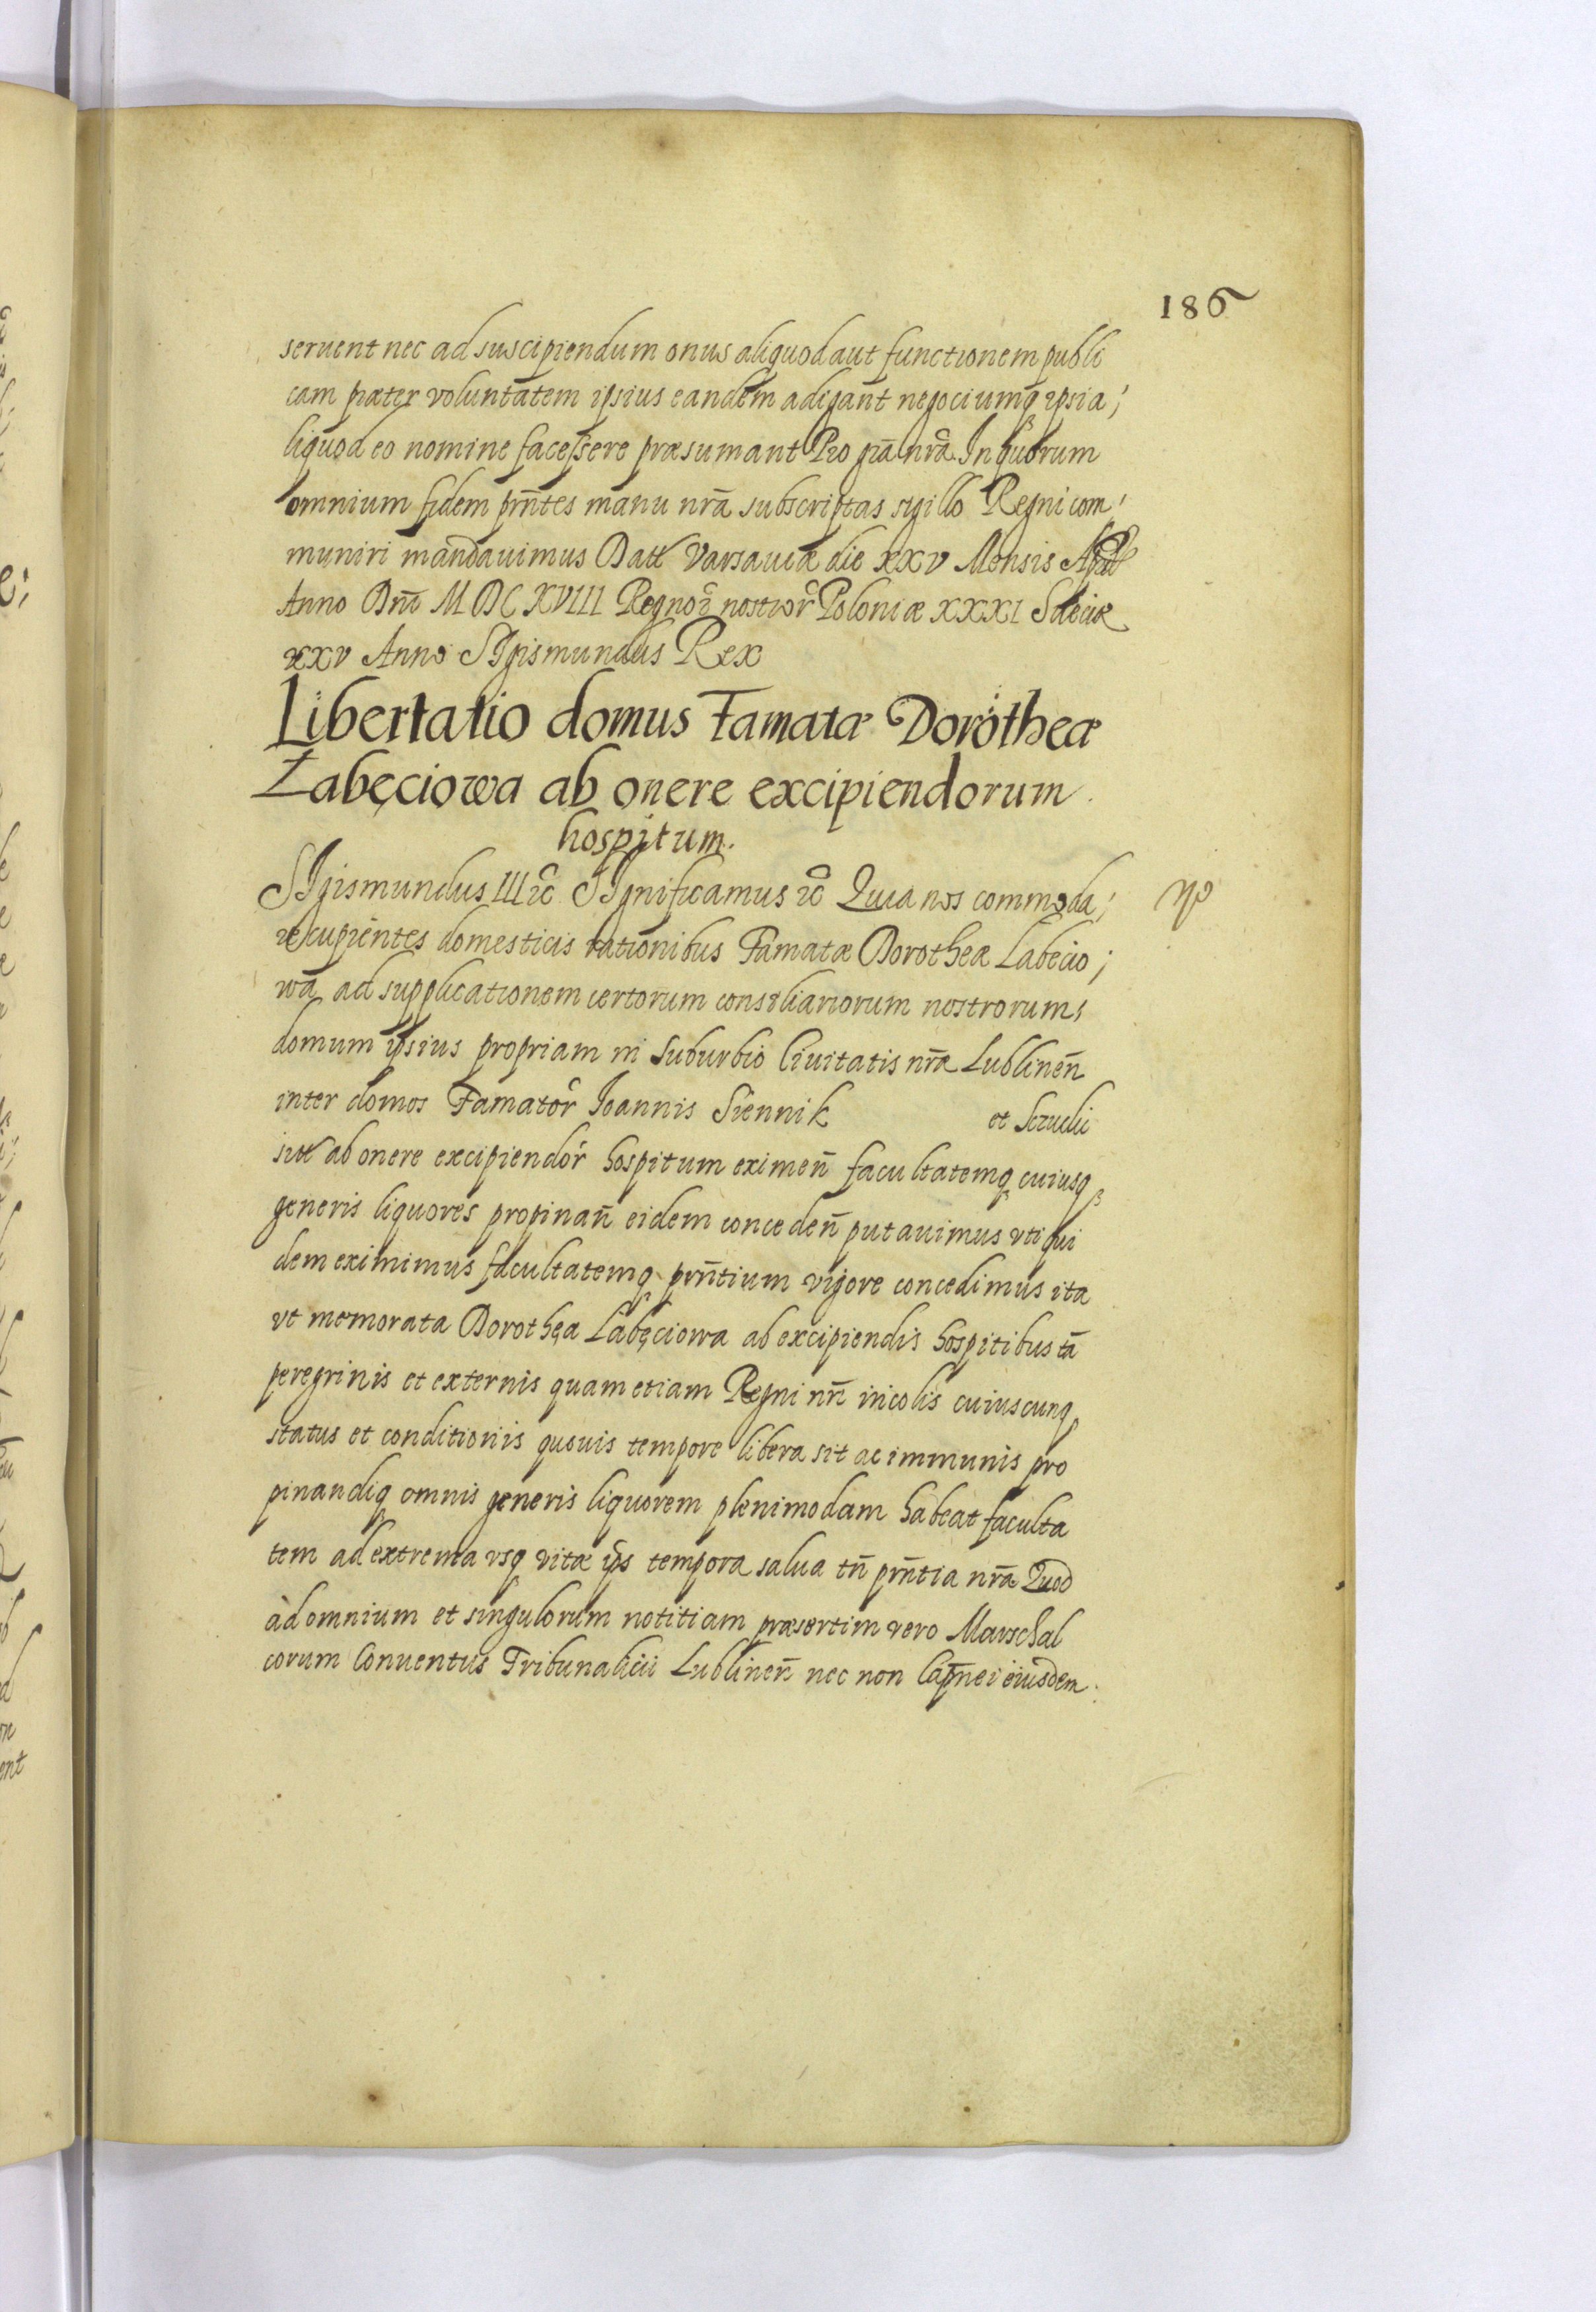 186
seruent nec ad suscipiendum onus aliquod aut functionem publi
cam præter voluntatem ipsius eandem adigant negociumq ipsi a;
liquod eo nomine facessere præsumant Pro grã nrã. In quorum
omnium fidem prñtes manu nrã subscriptas sigillo Regni com;
muniri mandauimus Datt Varsauiæ die XXV Mensis
Anno Dnĩ MDCXVIII Regnor̃ nostror̃ Poloniæ XXXI Sueciæ
XXV Anno Sigismundus Rex
Libertatio domus Famatæ Dorotheæ
Łabęciowa ab onere excipiendorum
hospitum.
Sigismundus III ꝛc̃ Significamus ꝛc̃ Quia nos commoda;
re cupientes domesticis rationibus Famatæ Dorotheæ Labecio;
wa ad supplicationem certorum consiliariorum nostrorum;
domum ipsius propriam in suburbio Ciuitatis nræ Lublineñ
inter domos Famator̃ Ioannis Siennik et
sitt ab onere excipiendor̃ hospitum eximeñ facultatemq cuiusq
generis liquores propinañ eidem concedeñ putauimus vti qui
dem eximimus facultatemq prñtium vigore concedimus ita
vt memorata Dorothęa Labęciowa ab excipiendis hospitibus tã
peregrinis et externis quam etiam Regni nrĩ incolis cuiuscunq
status et conditionis quouis tempore libera sit ac immunis pro
pinandiq omnis generis liquorem plenimodam habeat faculta
tem ad extrema vsq vitæ ips̃ tempora salua tñ prñtia nrã Quod
ad omnium et singulorum notitiam præsertim vero Marschal
corum Conuentus Tribunalicii Lublineñ nec non Capnei eiusdem